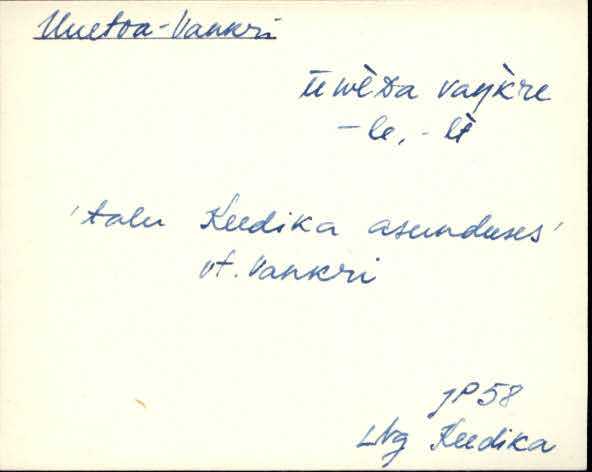 Uuetoa-Vankri
ūwèᴅa vaŋ̀kre
-le, -lt
'talu Keedika asunduses'
vt. Vankri
JP 58
LNg Keedika